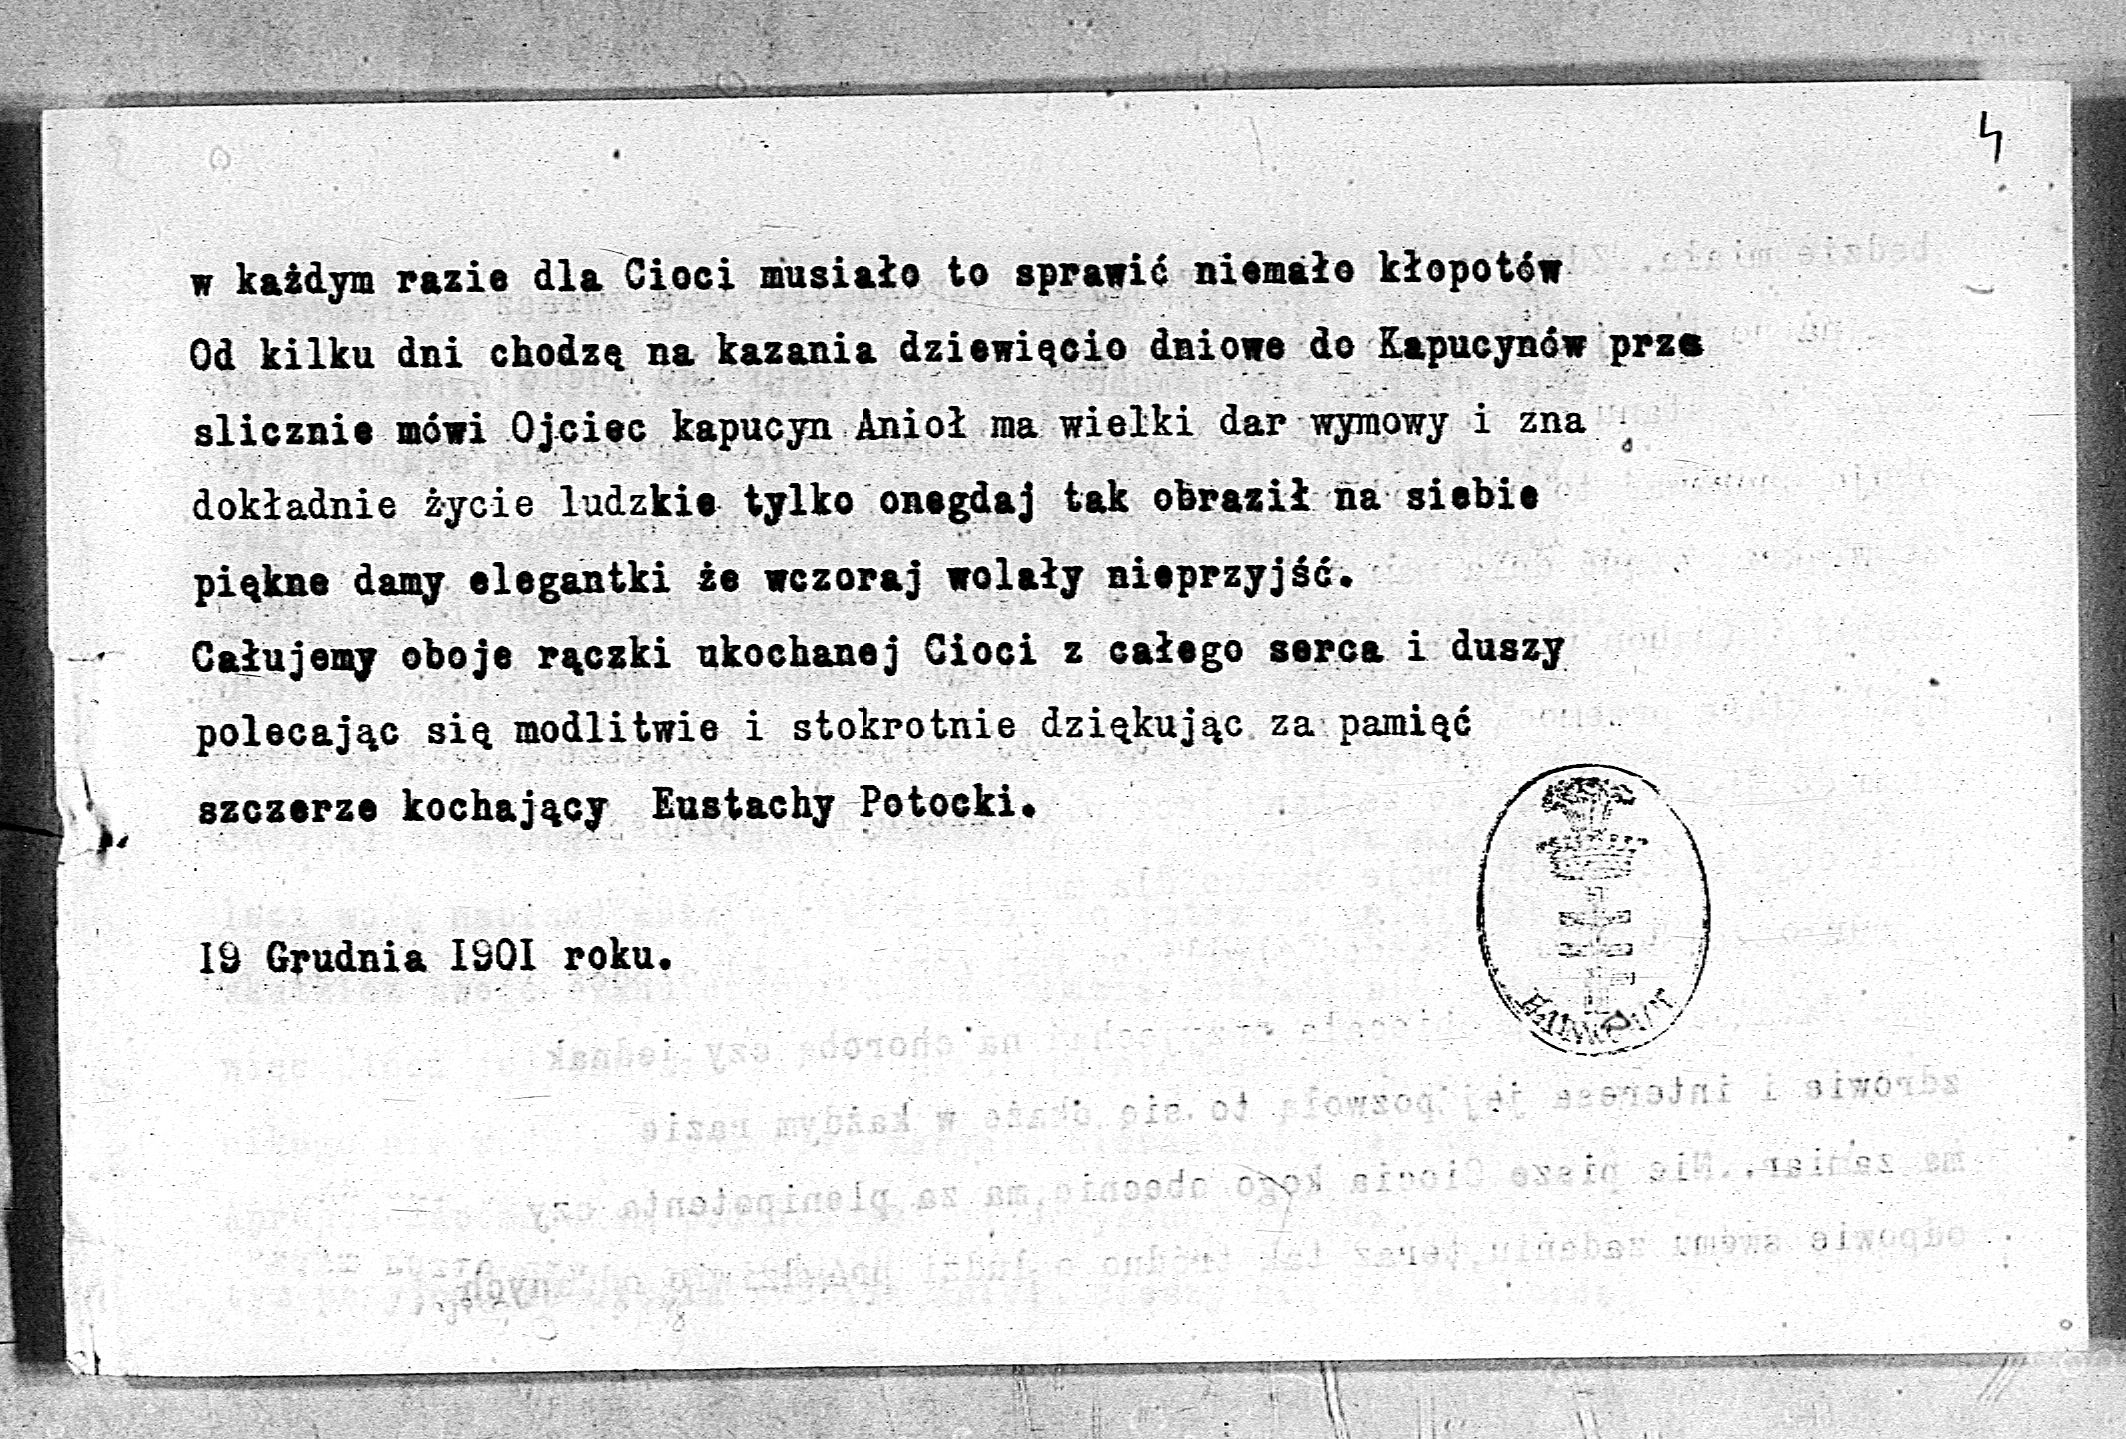 4
w każdym razie dla Cioci musiało to sprawić niemało kłopotów
Od kilku dni chodzę na kazania dziewięcio dniowe do Kapucynów prze
slicznie mówi Ojciec kapucyn Anioł ma wielki dar wymowy i zna
dokładnie życie ludzkie tylko onegdaj tak obraził na siebie
piękne damy elegantki że wczoraj wolały nieprzyjść.
Całujemy oboje rączki ukochanej Cioci z całego serca i duszy
polecając się modlitwie i stokrotnie dziękując za pamięć
szczerze kochający Eustachy Potocki.
I9 Grudnia I90I roku.